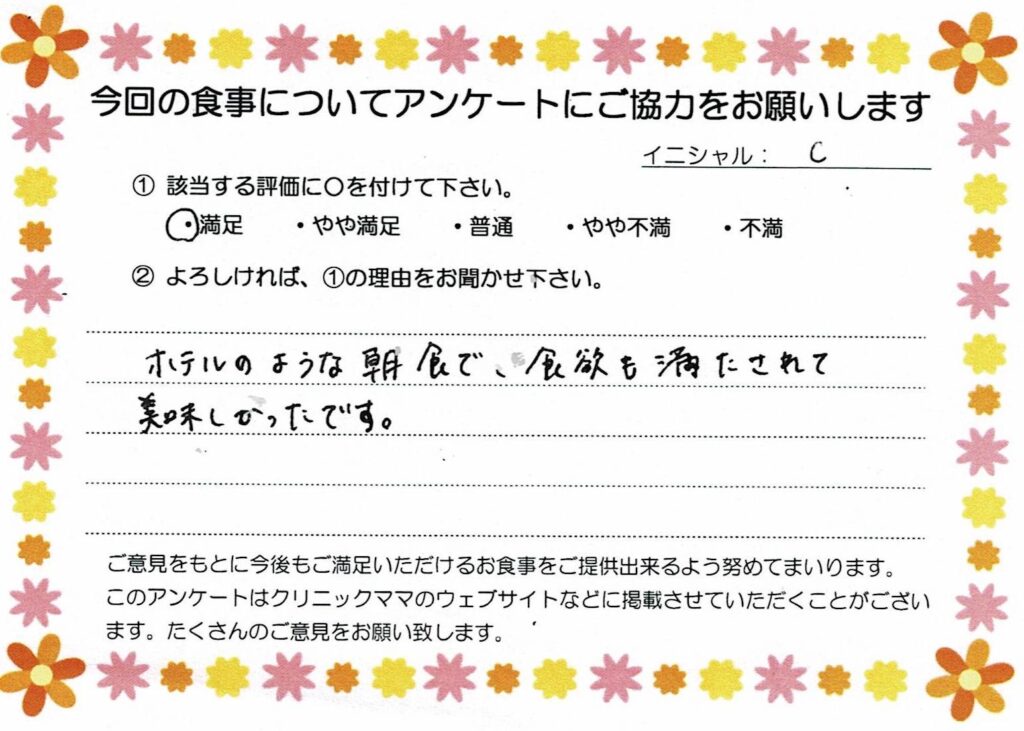 今回の食事についてアンケートにご協力をお願いします
イニシャル： C
① 該当する評価に〇を付けて下さい。
・満足 ・やや満足 ・普通 ・やや不満 ・不満
② よろしければ、①の理由をお聞かせ下さい。
ホテルのような朝食で、食欲も満たされて
美味しかったです。
ご意見をもとに今後もご満足いただけるお食事をご提供出来るよう努めてまいります。
このアンケートはクリニックママのウェブサイトなどに掲載させていただくことがござい
ます。たくさんのご意見をお願い致します。